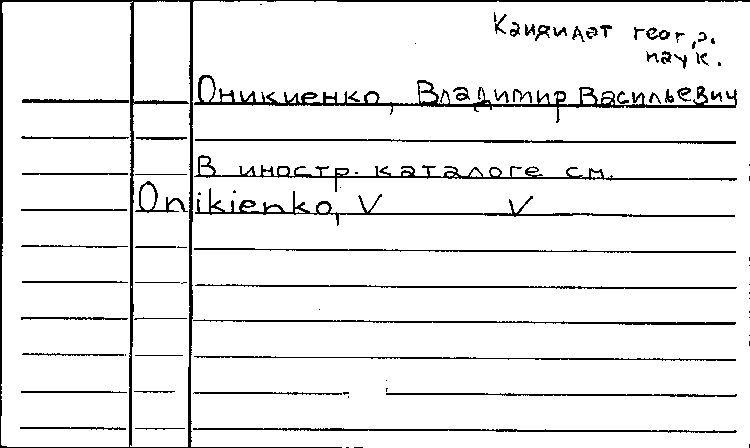 Кандидат геогр.
наук.
Оникиенко, Владимир Васильевич
В иностр. каталоге см.
Onikienko, V V